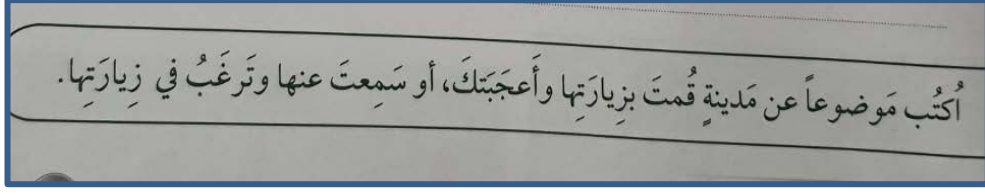 اُكتُب مَوضوعاً عن مَدينةٍ قُمتَ بزِيارَتِها وأَعجَبَتكَ، أو سَمِعتَ عنها وتَرغَبُ في زِيارَتِها.